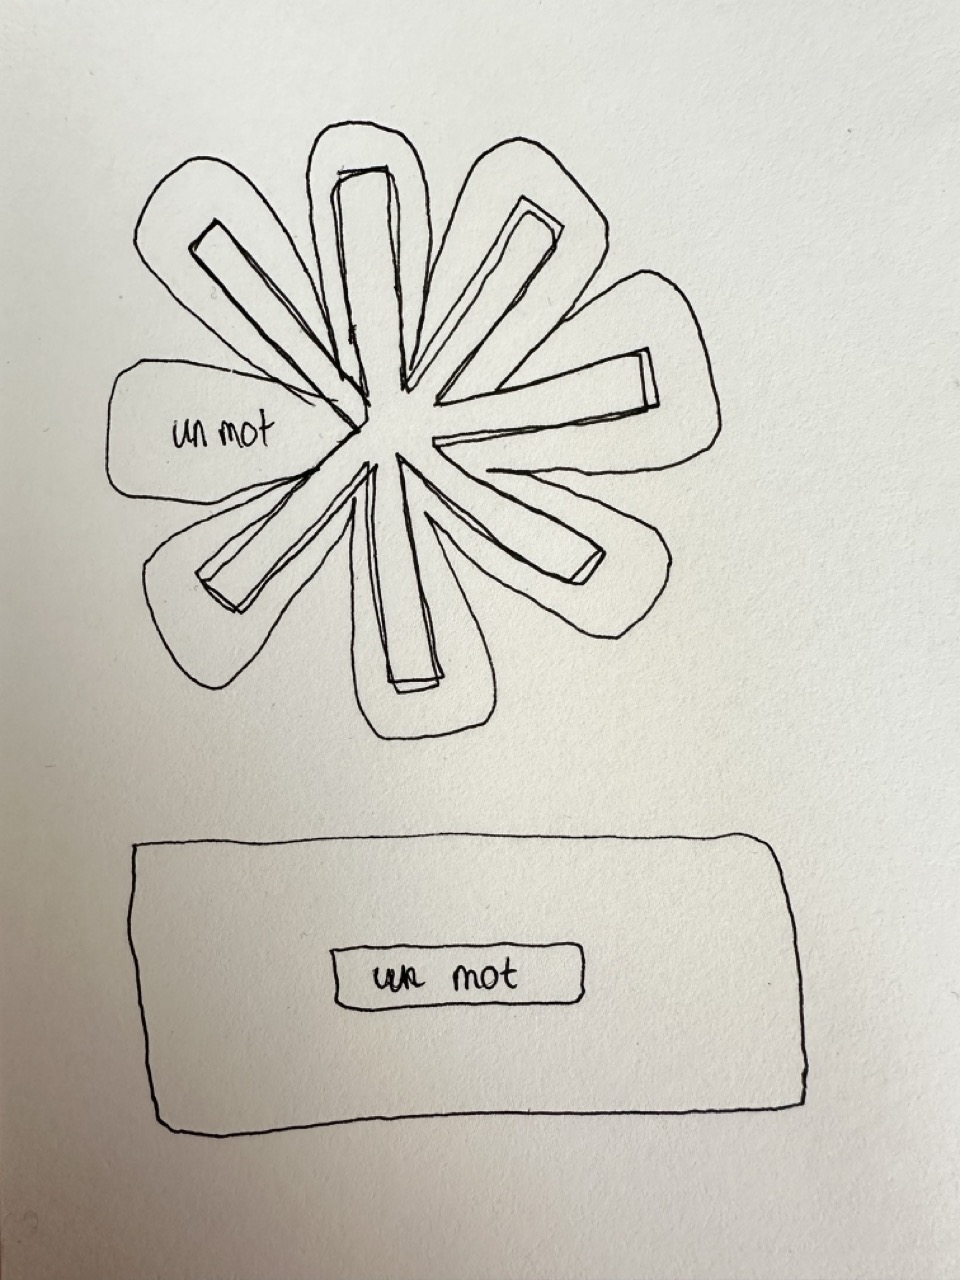 un mot
un mot